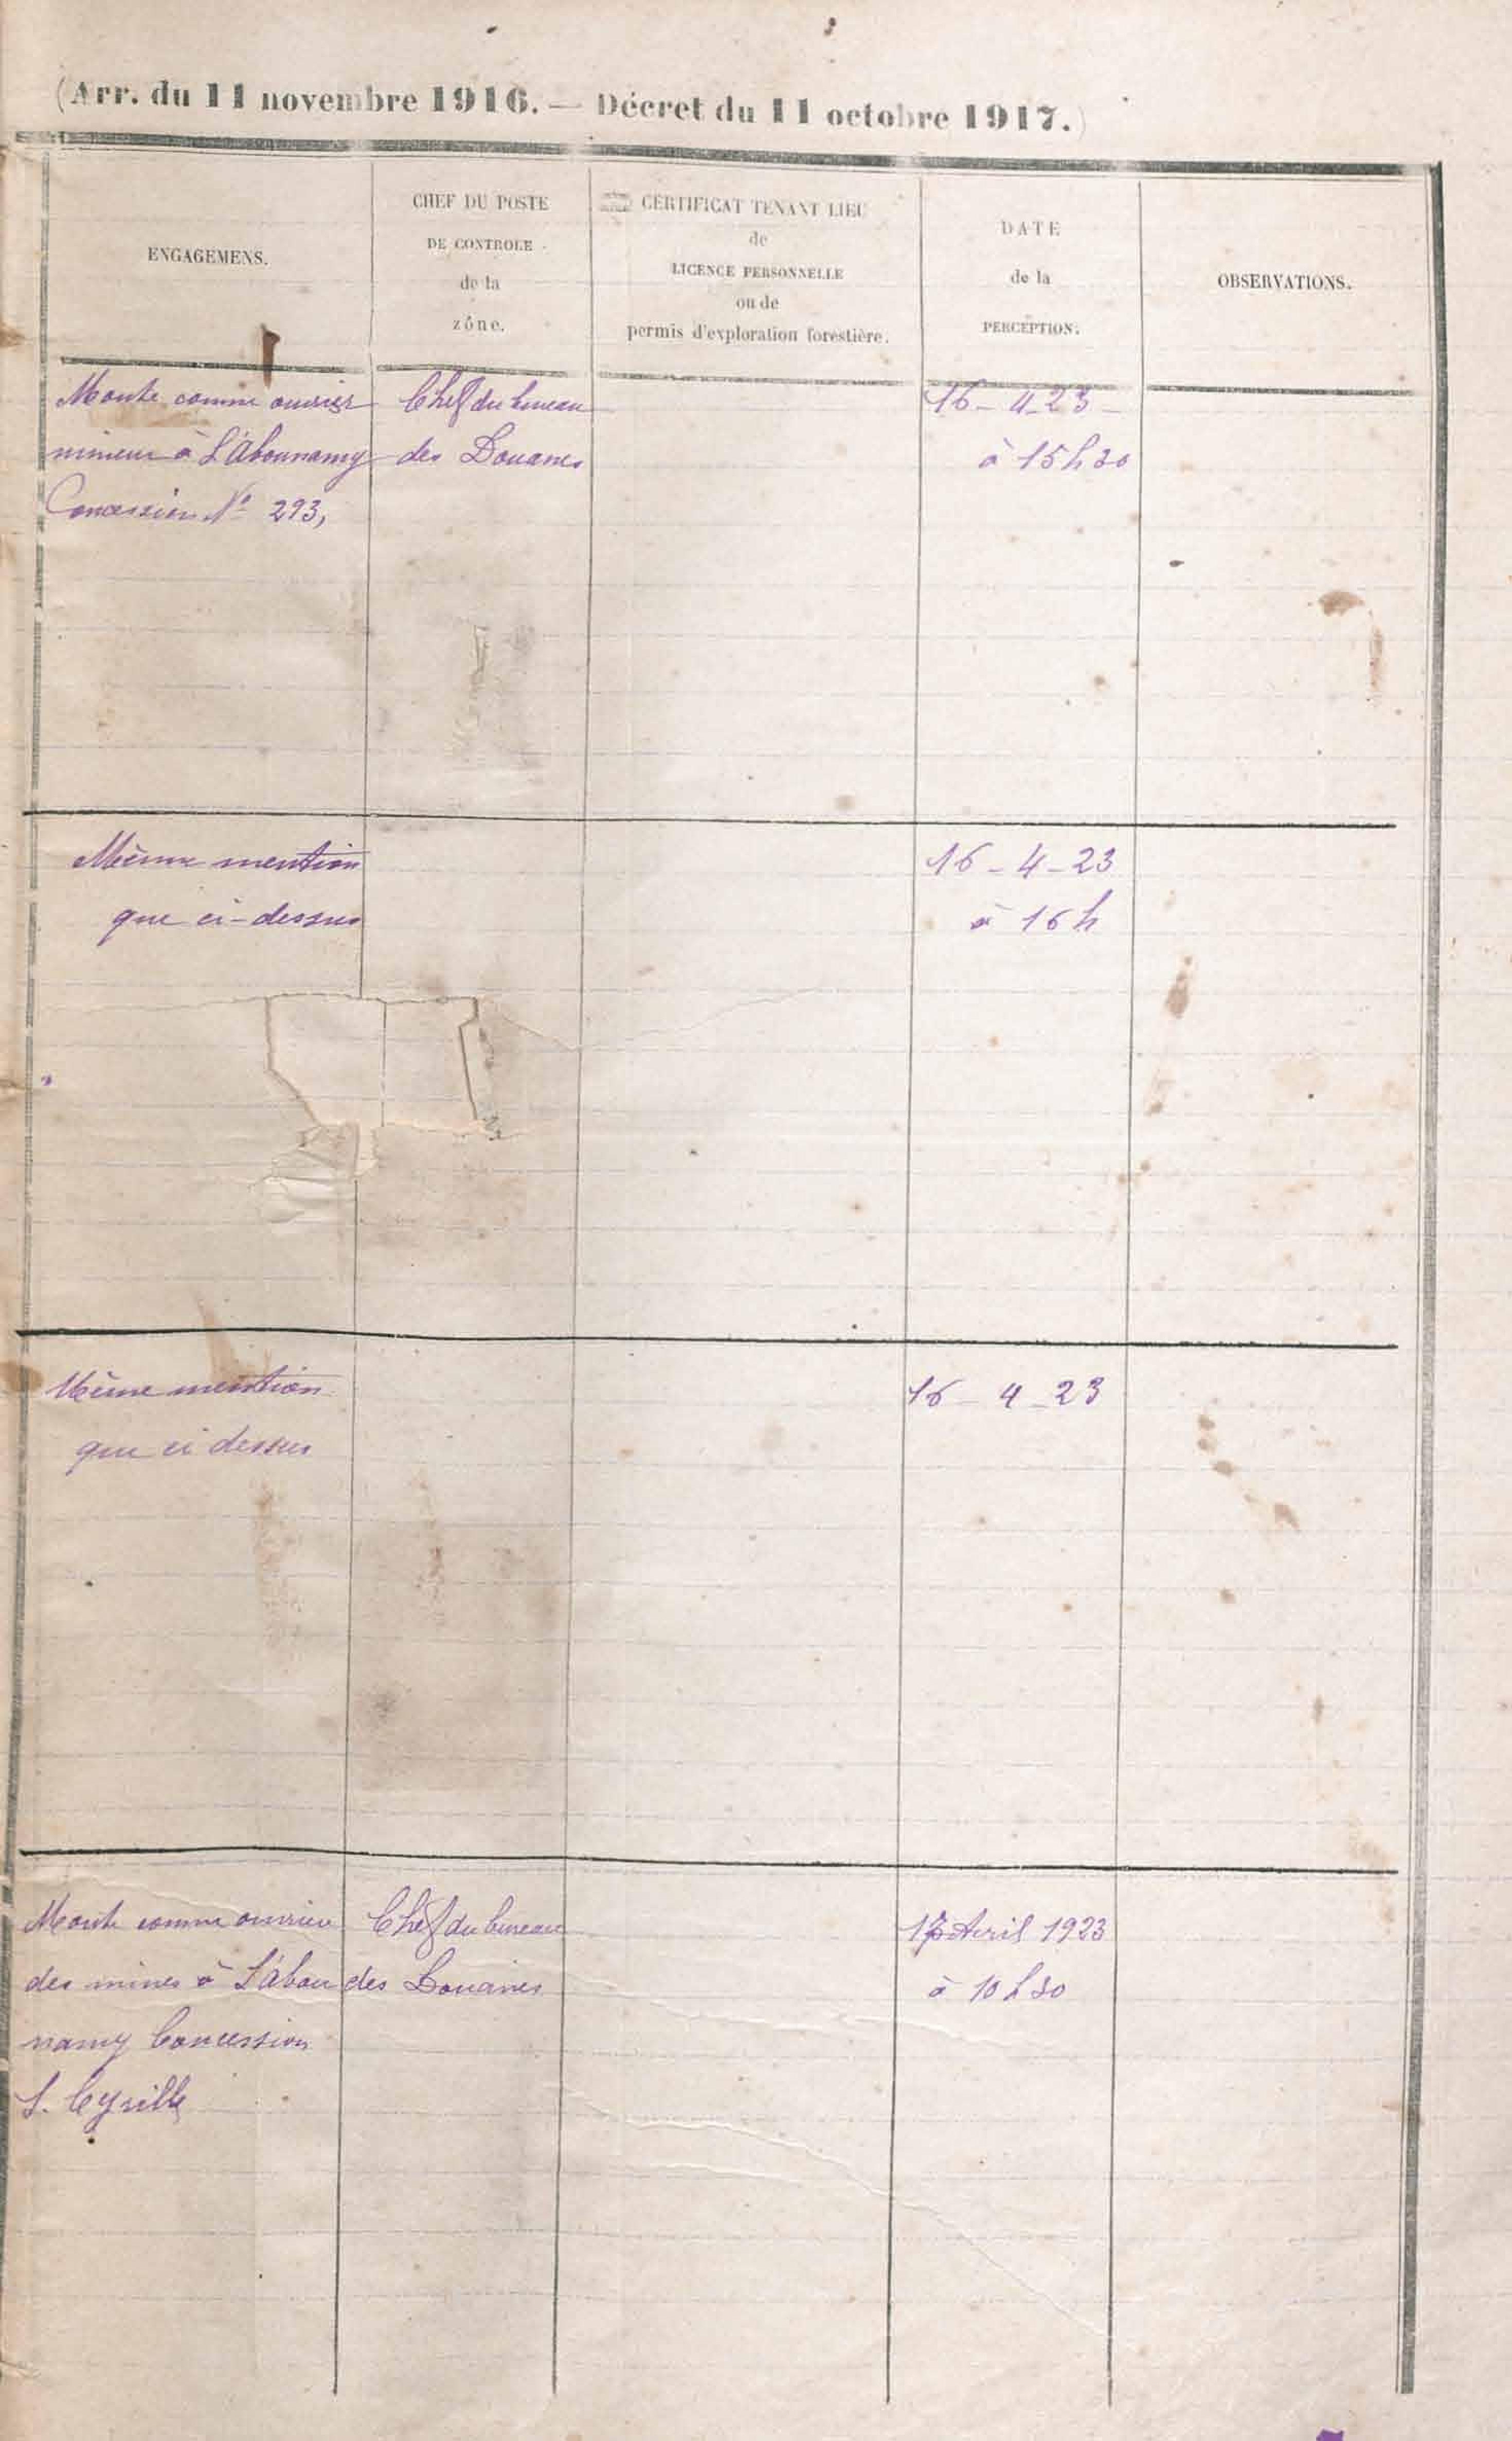 (Arr. du 11 novembre 1916. — Décret du 11 octobre 1917.)
ENGAGEMENS.
CHEF DU POSTE
DE CONTROLE
de la
zône.
CERTIFICAT TENANT LIEU
de
LICENCE PERSONNELLE
ou de
permis d'exploration forestière.
DATE
de la
PERCEPTION.
OBSERVATIONS.
Monte comme ouvrier
mineur à l'Abounamy
Concession N° 293,
Chef du bureau
des Douanes
16-4-23
à 15h30
Même mention
que ci-dessus
16-4-23
à 16h
Même mention
que ci dessus
16-4-23
Monte comme ouvrier
des mines à l'abou
namy Concession
S. Cyrille
Chef du bureau
des Douanes
17 Avril 1923
à 10h30